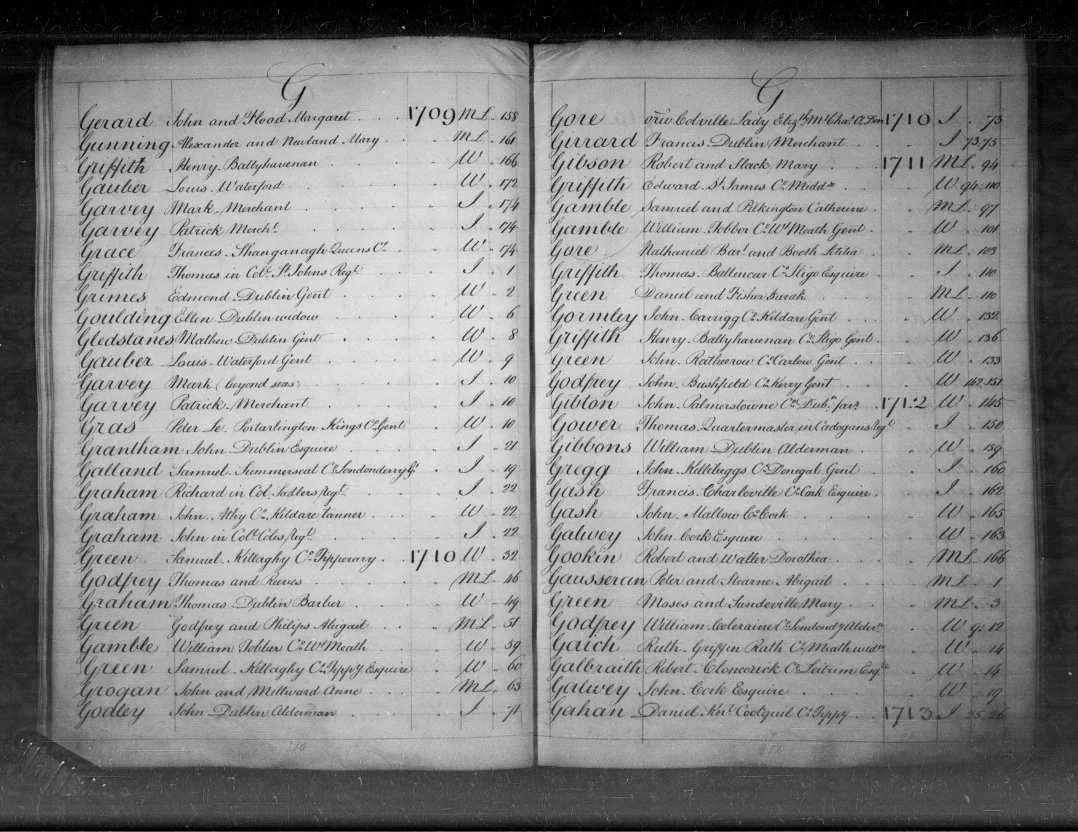 G
Gerard John and Flood Margaret 1709 M L 158
Gunning Alexander and Navland Mary M L 161
Griffith Henry Ballyhavenan W 166
Gauber Louis Waterford W 172
Garvey Mark Merchant I 174
Garvey Patrick Mercht. I 174
Grace Francis Shanganagh Queens Co. W 174
Griffith Thomas in Col. St. Johns Regt. I 1
Grimes Edmond Dublin Gent W 2
Goulding Ellen Dublin widow W 6
Gledstanes Mathew Dublin Gent W 8
Gauber Louis Waterford Gent W 9
Garvey Mark (beyond seas) I 10
Garvey Patrick Merchant I 10
Gras Peter Le Portarlington Kings Co. Gent W 10
Grantham John Dublin Esquire I 21
Galland Samuel Summerseat Co. Londonderry I 19
Graham Richard in Col. Sadlers Regt. I 22
Graham John Athy Co. Kildare tanner W 22
Graham John in Col. Coles Regt. I 22
Green Samuel Killaghy Co. Tipperary 1710 W 32
Godfrey Thomas and Reeves M L 46
Graham Thomas Dublin Barber W 49
Green Godfrey and Philips Abigail M L 51
Gamble William Tobber Co. Wt. Meath W 59
Green Samuel Killaghy Co. Tippy Esquire W 60
Grogan John and Millward Anne M L 63
Godley John Dublin Alderman I 71
G
Gore Colville Lady Elizth. 1710 I 73
Gerrard Francis Dublin Merchant I 73 75
Gibson Robert and Mack Mary 1711 M L 94
Griffith Edward St. James Co. Middx. W 94 110
Gamble Samuel and Pilkington Catherine M L 97
Gamble William Tobber Co. Wt. Meath Gent W 101
Gore Nathaniel Bart. and Booth Letitia M L 103
Griffith Thomas Ballincar Co. Sligo Esquire I 110
Green Daniel and Fisher Sarah M L 110
Gormley John Carrigg Co. Kildare Gent W 132
Griffith Henry Ballyhavenan Co. Sligo Gent W 136
Green John Rathcrow Co. Carlow Gent W 133
Godfrey John Bushfield Co. Kerry Gent W 142 151
Gibton John Palmerstowne Co. Dubn. farr. 1712 W 145
Gower Thomas Quartermaster in Cadogans Regt. I 150
Gibbons William Dublin Alderman W 159
Gregg John Killibeggs Co. Donegal Gent I 160
Gash Francis Charleville Co. Cork Esquire I 162
Gash John Mallow Co. Cork W 165
Galwey John Cork Esquire W 163
Gookin Robert and Waller Dorothea M L 166
Gausseran Peter and Hearne Abigail M L 1
Green Moses and Sandeville Mary M L 3
Godfrey William Coleraine Co. Londondy Aldern. W 9 12
Gaich Ruth Griffin Rath Co. Meath widw. W 14
Galbraith Robert Cloncorick Co. Leitrim Esqre. W 14
Galwey John Cork Esquire W 19
Gahan Daniel Knt. Coolquil Co. Tippy 1713 I 25 26